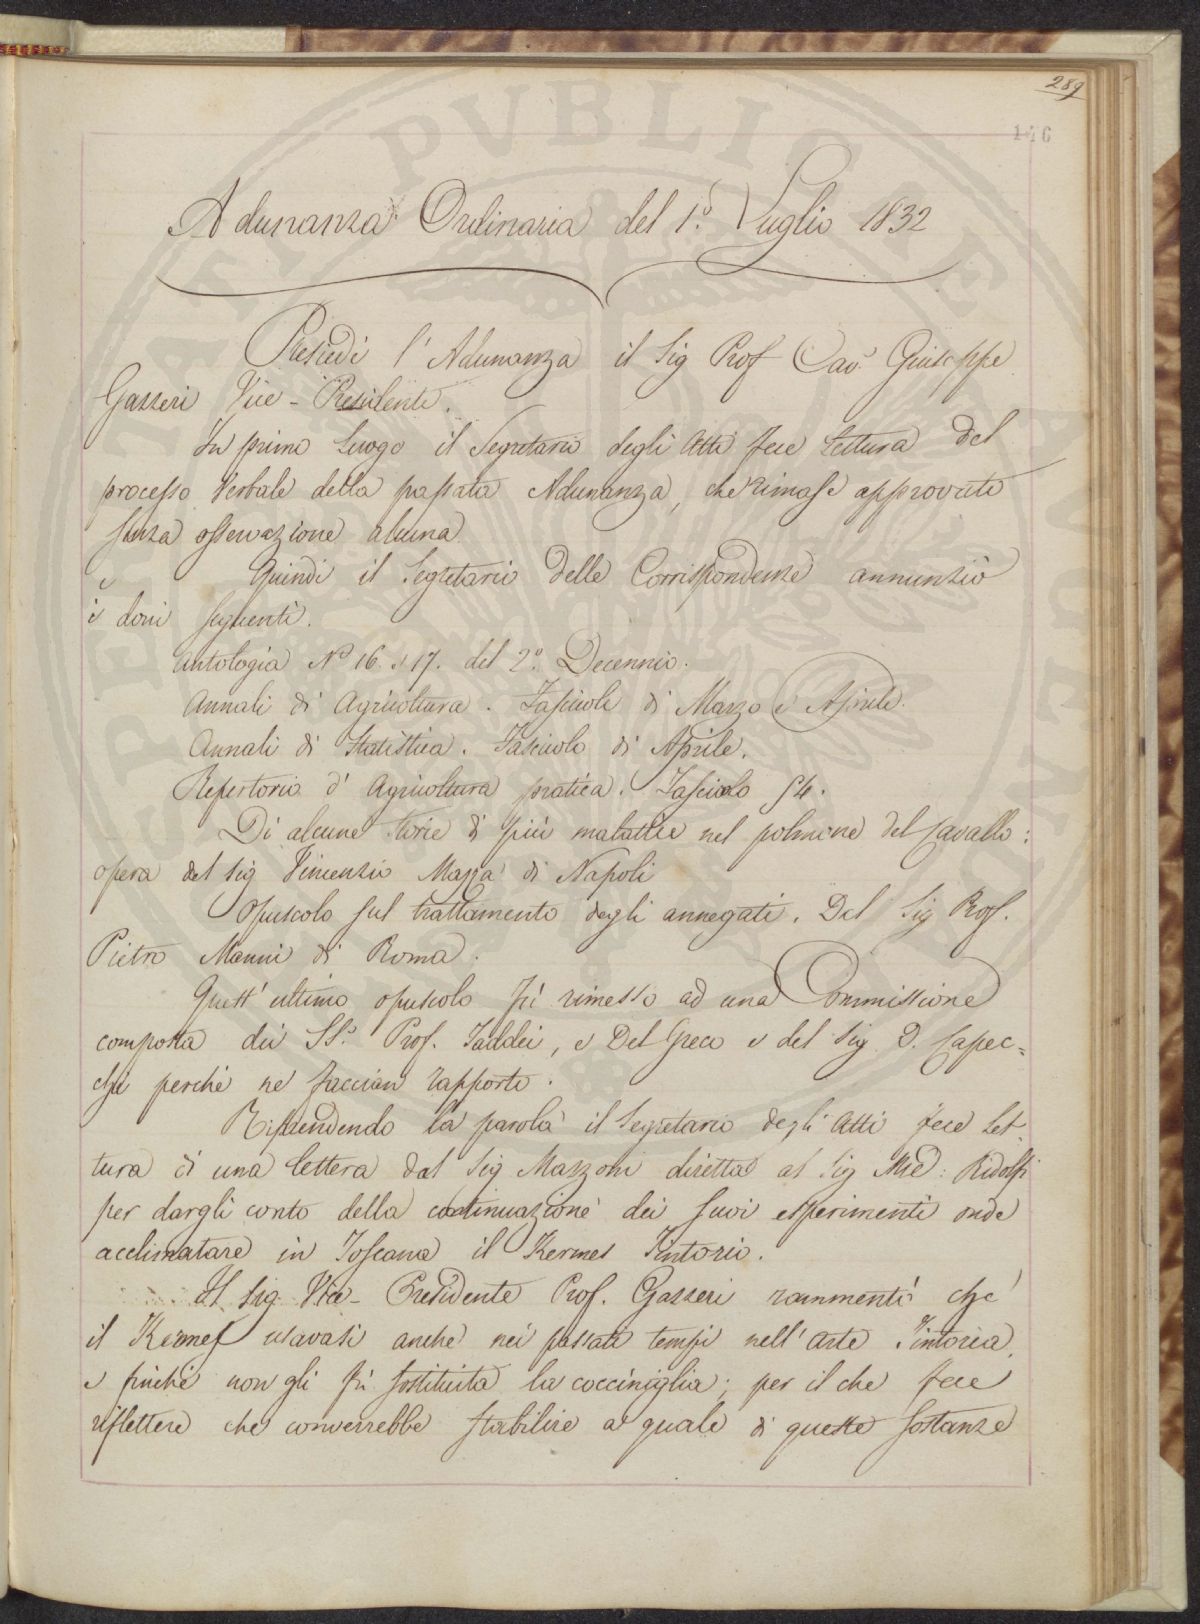 289
146
Adunanza Ordinaria del 1.o Luglio 1832
Presiedè l'Adunanza il Sig Prof Cav. Giuseppe
Gazzeri Vice-Presidente.
In primo luogo il Segretario degli Atti fece lettura del
processo Verbale della passata Adunanza, che rimase approvato
senza osservazione alcuna
Quindi il Segretario delle Corrispondenze annunziò
i doni seguenti.
Antologia No 16. e 17. del 2o. Decennio.
Annali di Agricoltura. Fascicoli di Marzo e Aprile.
Annali di Statistica. Fascicolo di Aprile.
Repertorio d'Agricoltura pratica. Fascicolo 54.
Di alcune storie di più malattie nel polmone del Cavallo:
opera del Sig Vincenzio Mazza di Napoli
Opuscolo sul trattamento degli annegati. Del Sig Prof.
Pietro Manni di Roma.
Quest'ultimo opuscolo fù rimesso ad una Commissione
composta dei SS.i Prof. Taddei, e Del Greco e del Sig. D. Capec=
chi perchè ne faccian rapporto.
Riprendendo la parola il Segretario degli Atti fece let-
tura di una lettera dal Sig Mazzoni diretta al Sig Mse: Ridolfi
per dargli conto della continuazione dei suoi esperimenti onde
acclimatare in Toscana il Kermes Tintorio.
Il Sig. Vice-Presidente Prof. Gazzeri rammentò che
il Kermes usavasi anche nei passati tempi nell'arte Tintoria,
e finchè non gli fù sostituita la cocciniglia; per il che fece
riflettere che converrebbe stabilire a quale di queste sostanze